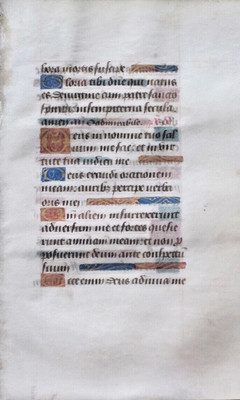 hora mortis suscipe
Gloria tibi dñe qui natus
es de virgine cum patre sancto
spiritu in sempiterna secula
amen
Deus in nomine tuo sal
uum me fac: et in uir
tute tua iudica me
Deus exaudi orationem
meam: auribus percipe verba
oris mei
Qm alieni insurrexerunt
aduersum me et fortes quesie
runt animam meam: et non p
posuerunt deum ante conspectū
suum
Ecce enim deus adiuua me